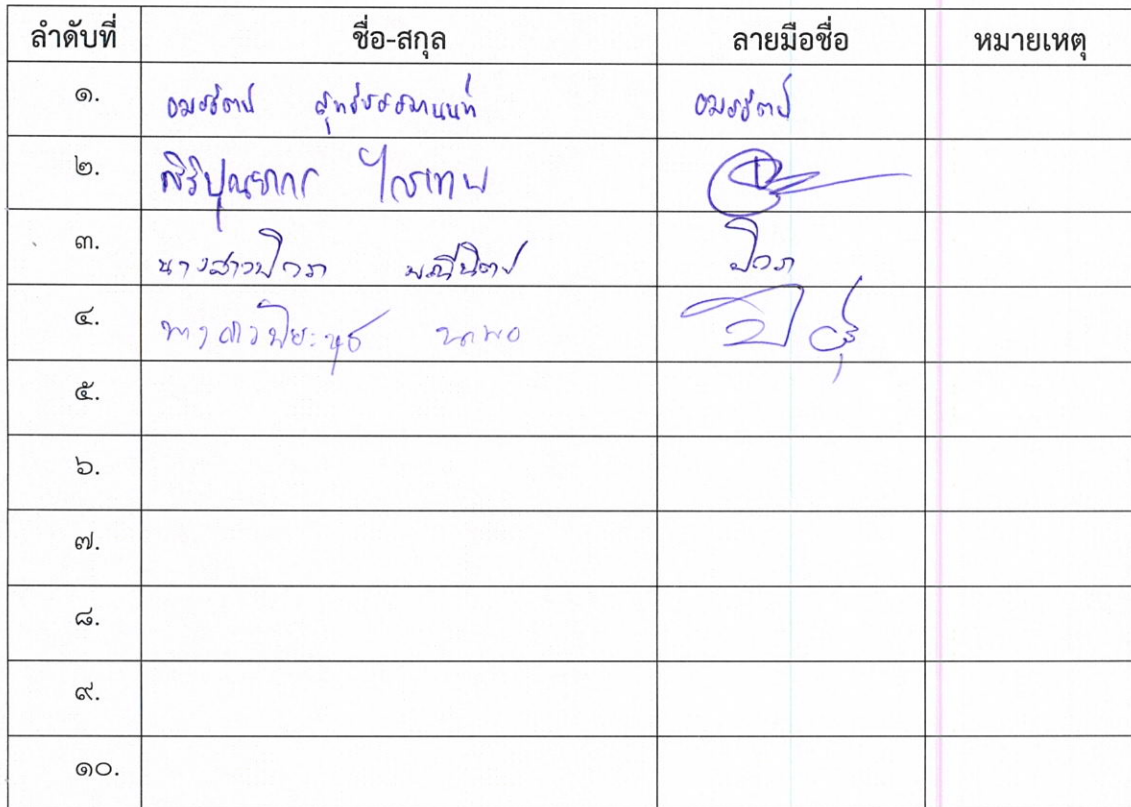 ลำดับที่ ชื่อ-สกุล ลายมือชื่อ หมายเหตุ
๑. อมรรัตน์ สุทธิธรรมานนท์ อมรรัตน์
๒. สิริปุณยากร ไกรเทพ
๓. นางสาวปิวรา
๔. นางสาวปิยะนุช
๕.
๖.
๗.
๘.
๙.
๑๐.